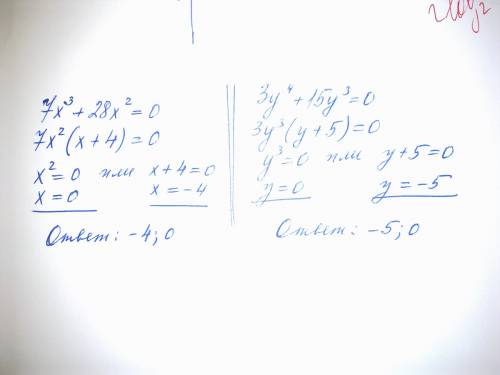 2 log₂
7x³ + 28x² = 0
7x²(x + 4) = 0
x² = 0 или x + 4 = 0
x = 0 x = -4
Ответ: -4; 0
3y⁴ + 15y³ = 0
3y³(y + 5) = 0
y³ = 0 или y + 5 = 0
y = 0 y = -5
Ответ: -5; 0